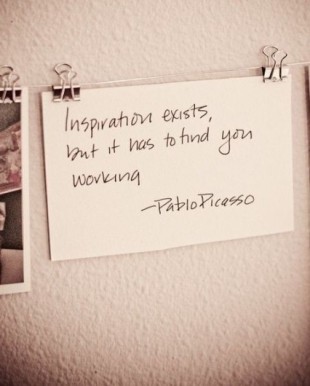 Inspiration exists,
but it has to find you
working
—Pablo Picasso